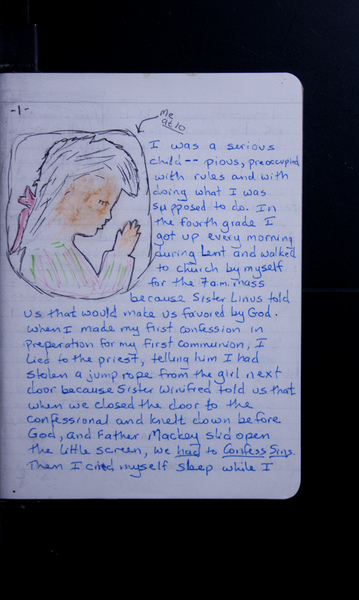 -1-
me
at 10
I was a serious
child -- pious, preoccupied
with rules and with
doing what I was
supposed to do. In
the fourth grade I
got up every morning
during Lent and walked
to church by myself
for the 7 a.m. mass
because Sister Linus told
us that would make us favored by God.
When I made my first confession in
preparation for my first communion, I
lied to the priest, telling him I had
stolen a jump rope from the girl next
door because Sister Winifred told us that
when we closed the door to the
confessional and knelt down before
God, and Father Mackey slid open
the little screen, we had to Confess Sins.
Then I cried myself sleep while I